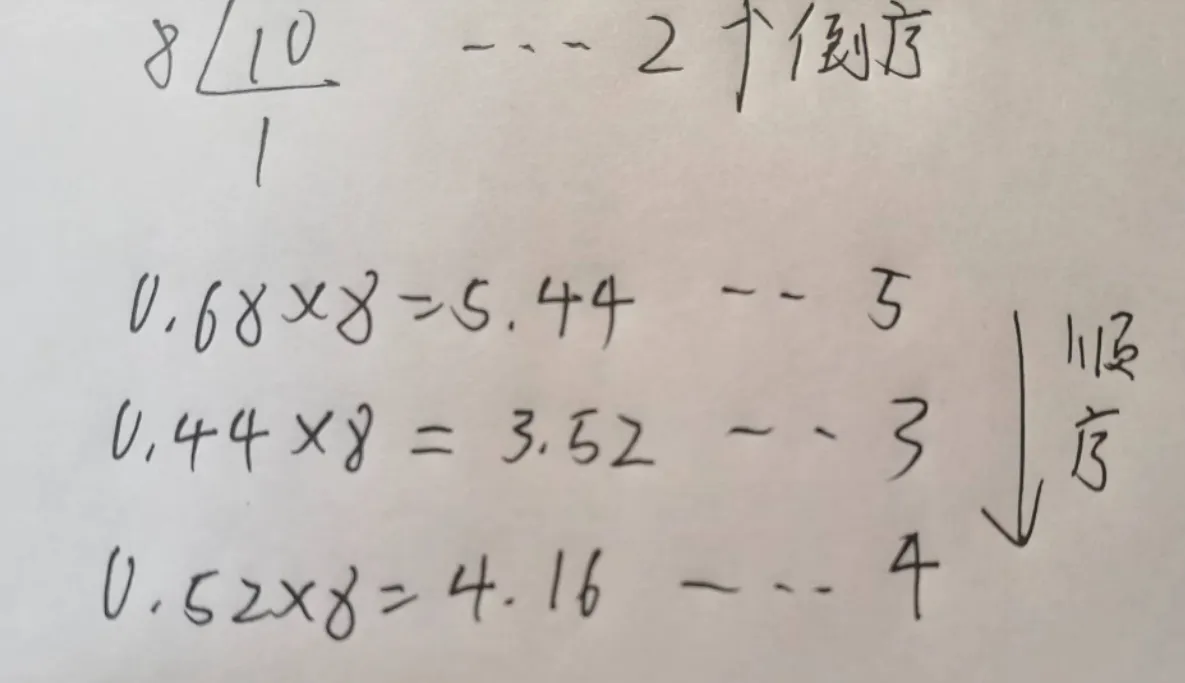 8 10 --- 2 倒序
1
0.68×8=5.44 -- 5
0.44×8=3.52 -- 3
0.52×8=4.16 --- 4
顺序